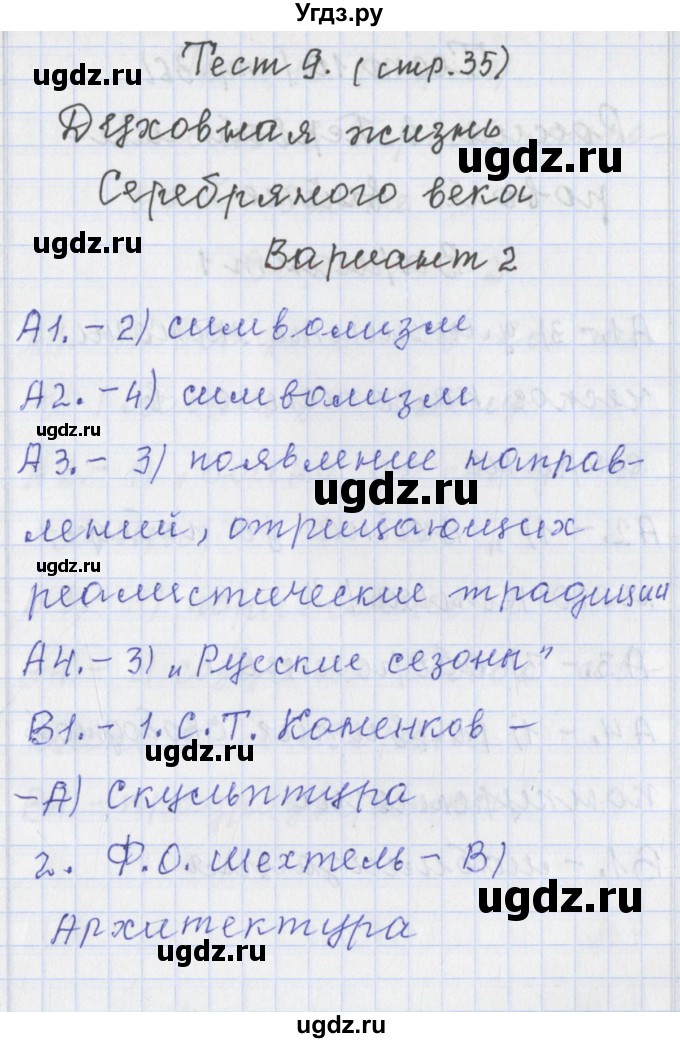 Угдз.ру
Тест 9. (стр. 35)
ugdz.ru
Духовная жизнь
ugdz.ru
Серебряного века
ugdz.ru
Вариант 2
А1. - 2) символизм
ugdz.ru ugdz.ru
А2. - 4) символизм
ugdz.ru
А3. - 3) появление направ-
ugdz.ru
лений, отрицающих
ugdz.ru
реалистические традиции
А4. - 3) „Русские сезоны"
ugdz.ru
В1. - 1. С. Т. Коненков -
ugdz.ru
- А) Скульптура
ugdz.ru
2. Ф. О. Шехтель - В)
ugdz.ru
Архитектура
ugdz.ru
ugdz.ru